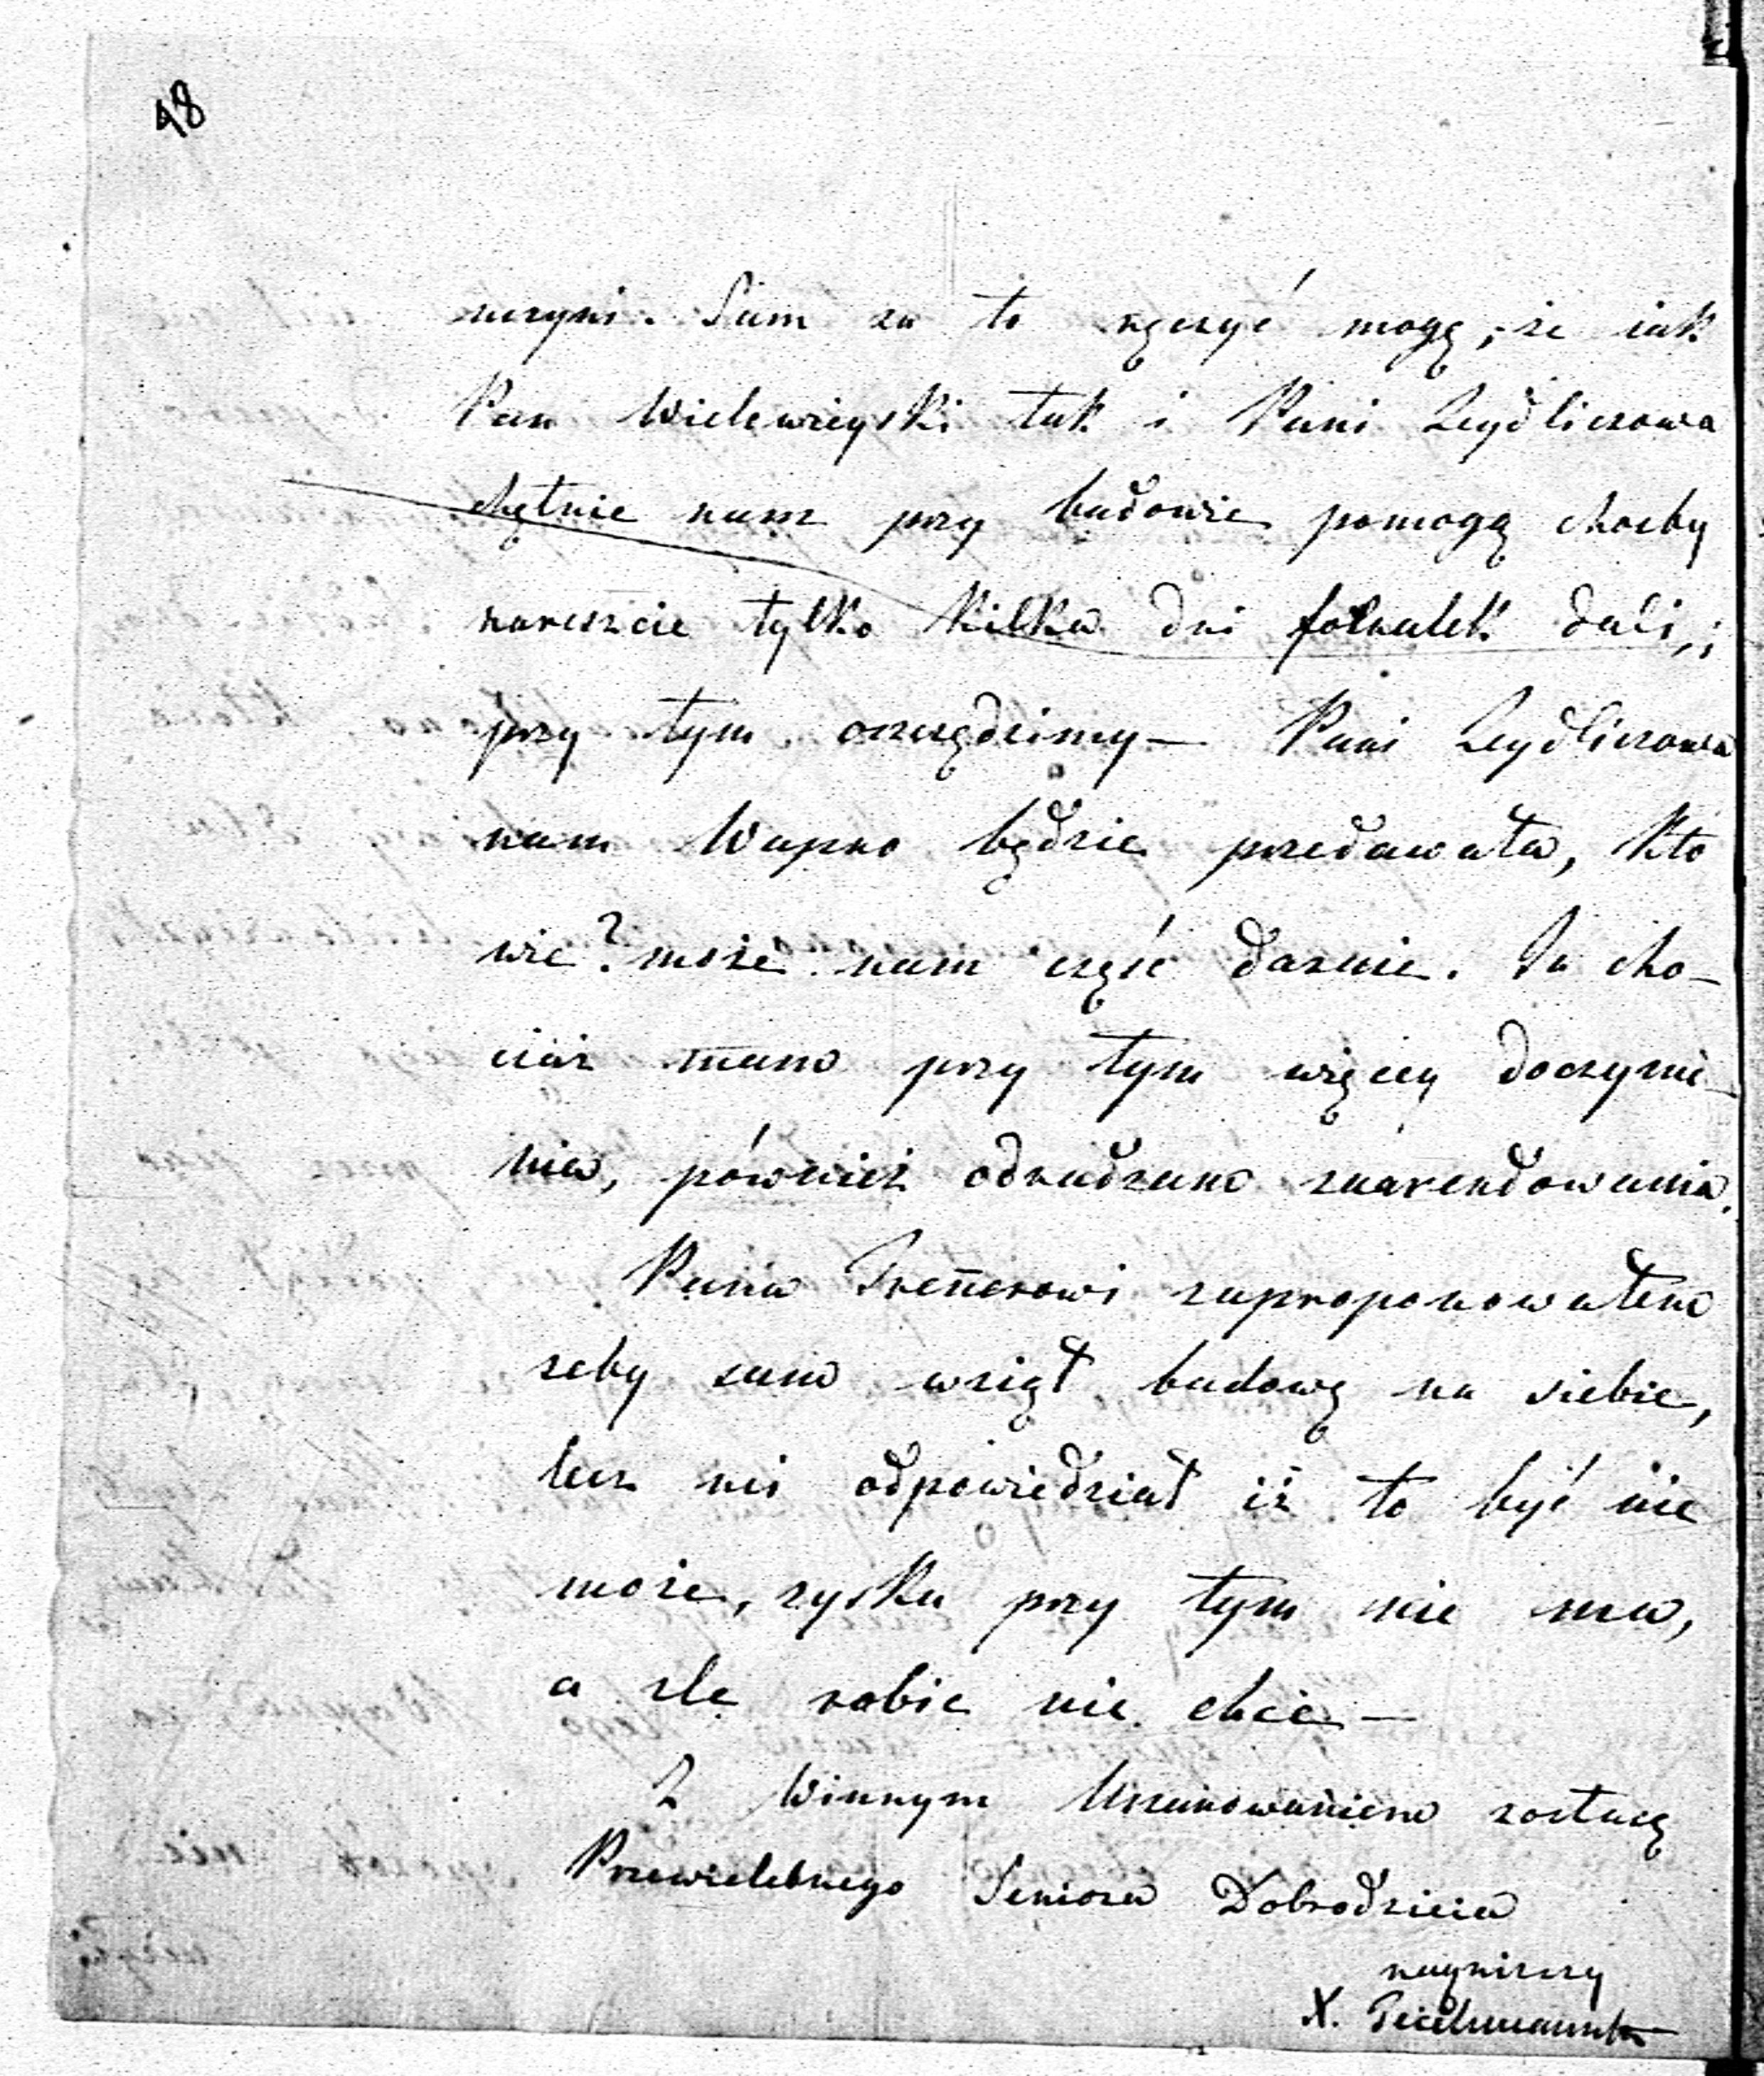 48
uczyni. Sam za to ręczyć mogę, że iak
Pan Wielewieyski tak i Pani Zeydliczowa
chętnie nam przy budowie pomogą choćby
nareszcie tylko kilka dni fornalek dali,;
przy tym oszczędzimy — Pani Zeydliczowa
nam Wapno będzie przedawała, kto
wie? może nam część daruie. Ja cho-
ciaż mam przy tym więcey doczyni-
nia, również odradzam zaarendowania.
Panu Trennerowi zaproponowałem
żeby sam wziął budowę na siebie,
lecz mi odpowiedział iż to być nie
może, zysku przy tym nie ma,
a źle robić nie chce —
Z Winnym Uszanowaniem zostaię
Przewielebnego Seniora Dobrodzieia
nayniższy
X.